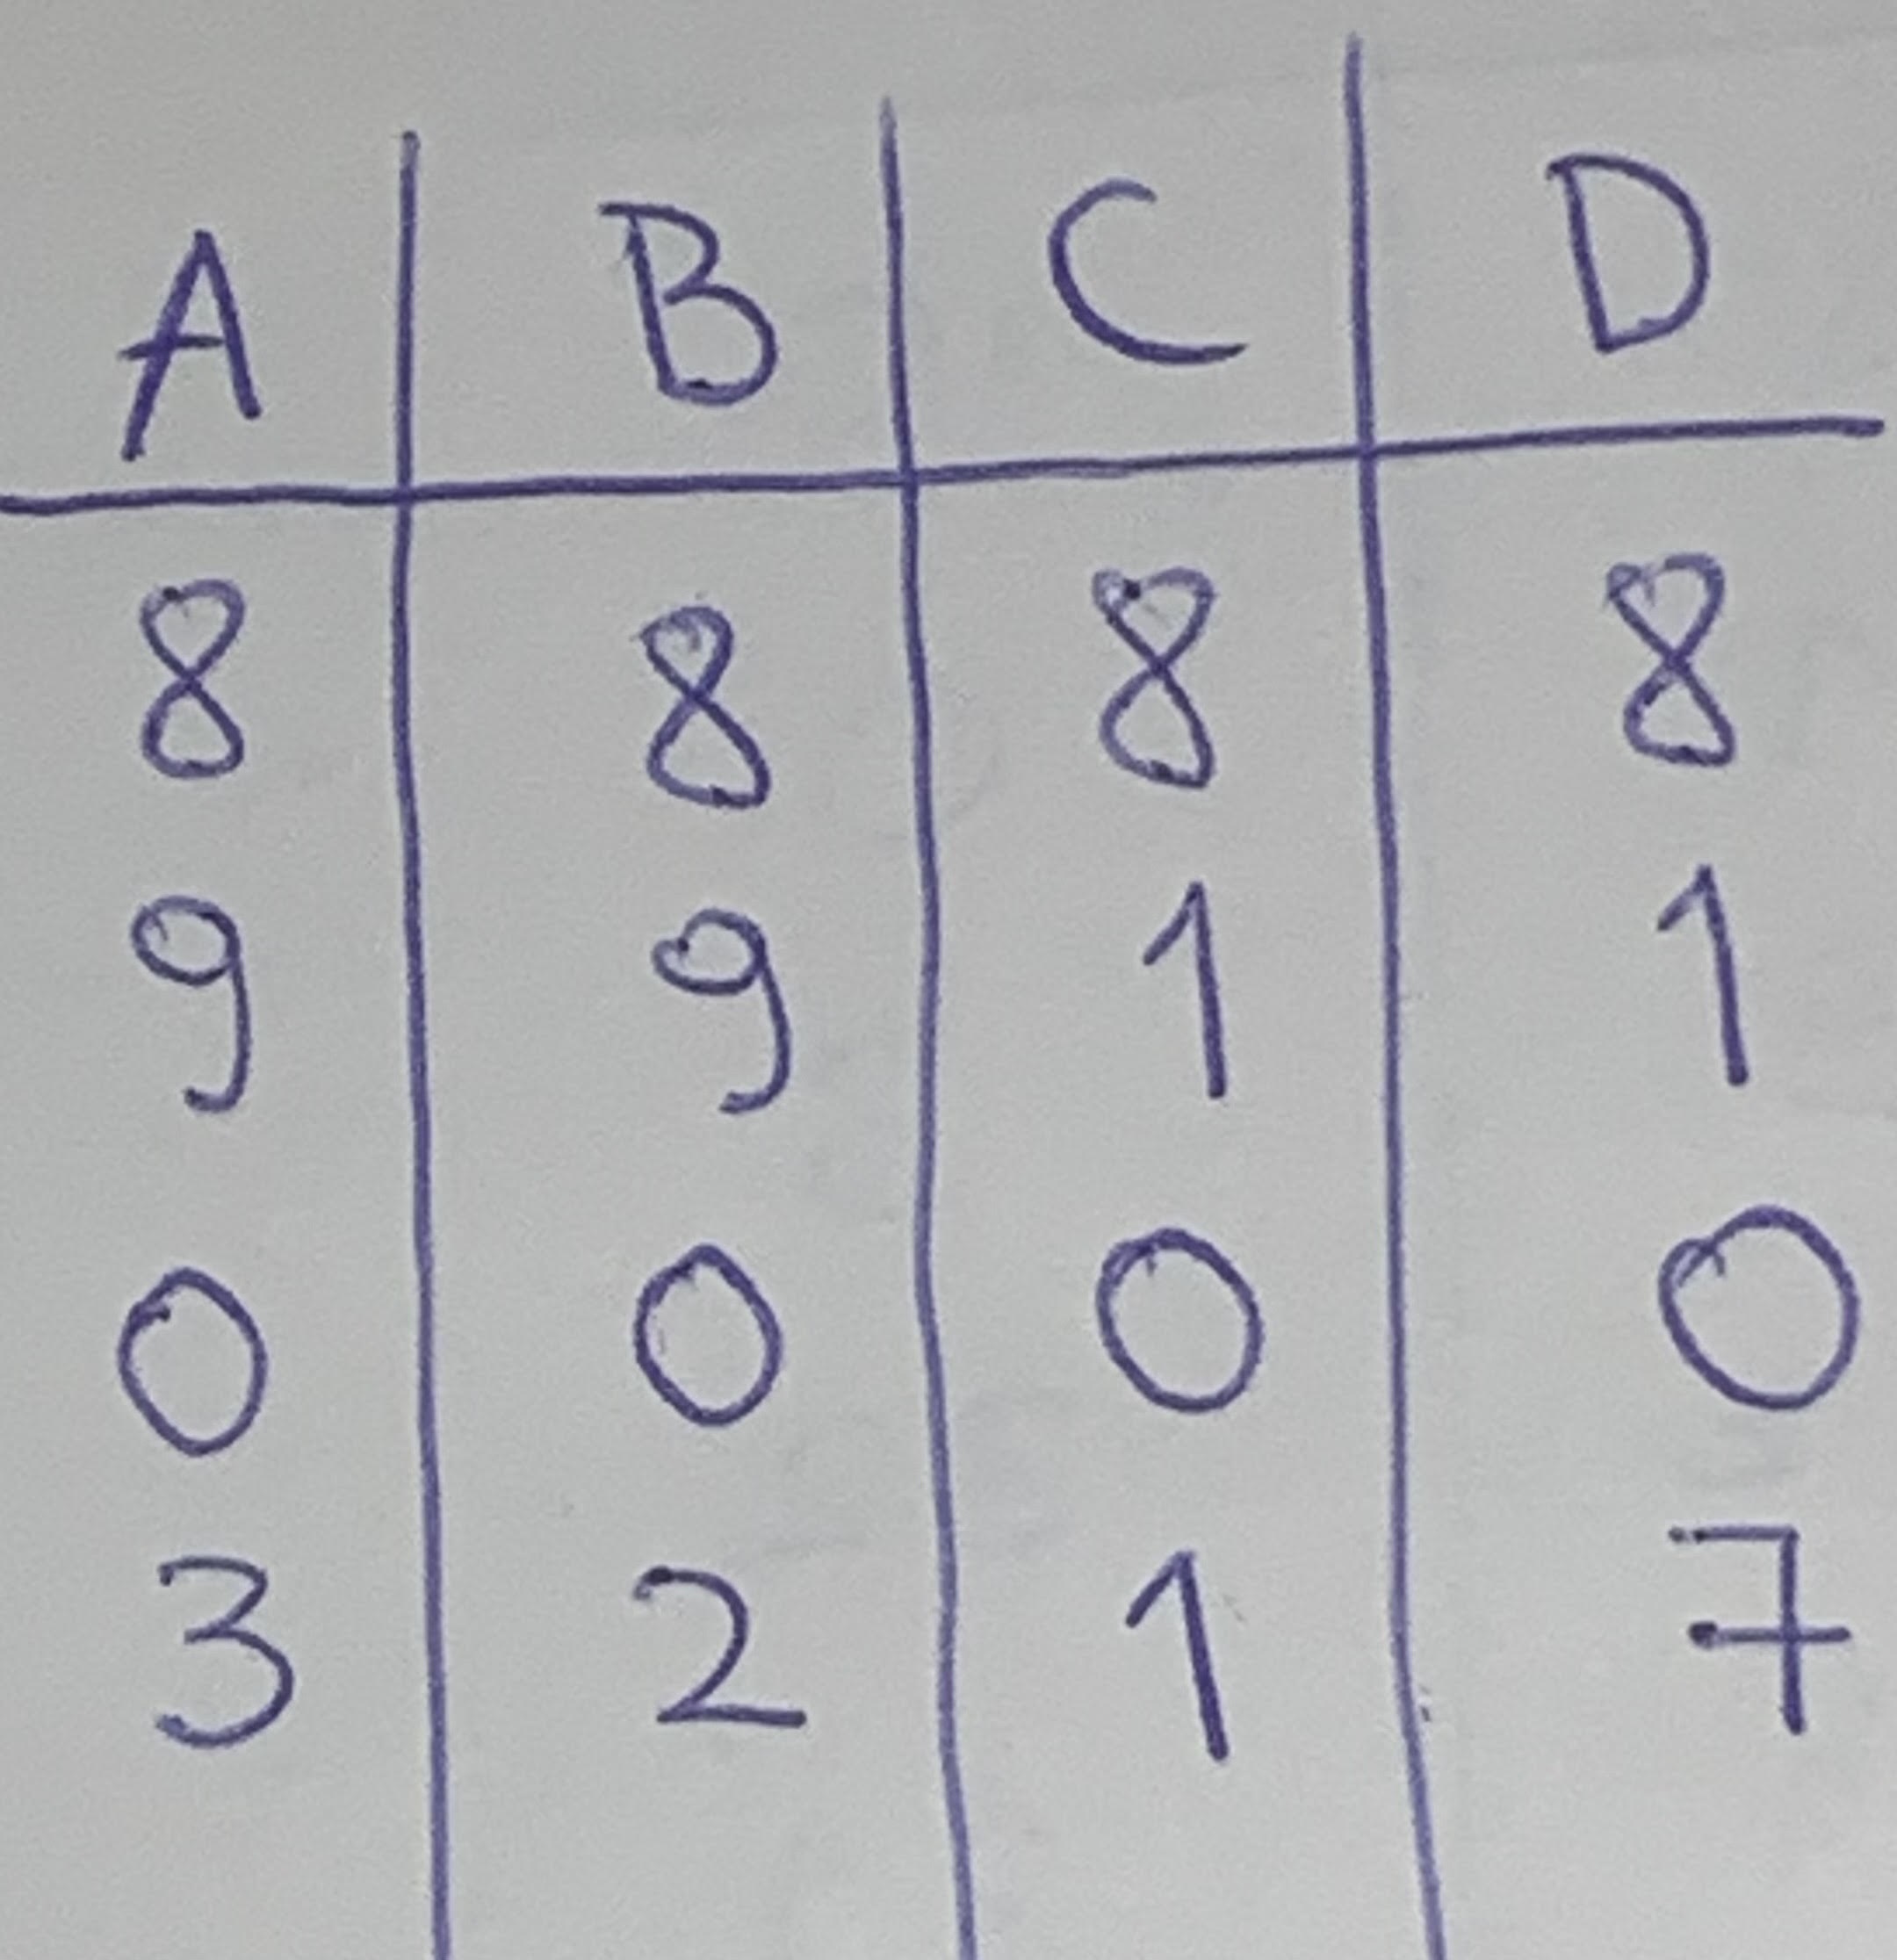 A B C D
8 8 8 8
9 9 1 1
0 0 0 0
3 2 1 7